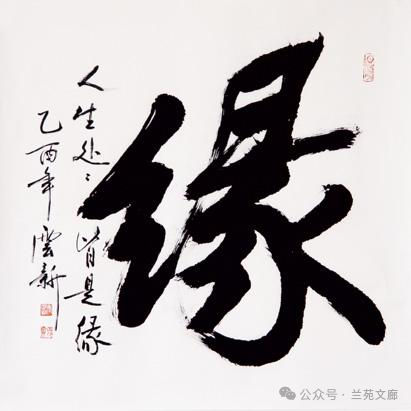 缘
人生处〻皆是缘
乙酉年 云新
公众号 · 兰苑文廊